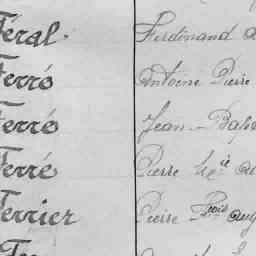 Féral. Ferdinand
Ferró Antoine Pierre
Ferré Jean-Bap
Ferré Pierre
Ferrier Pierre Aug